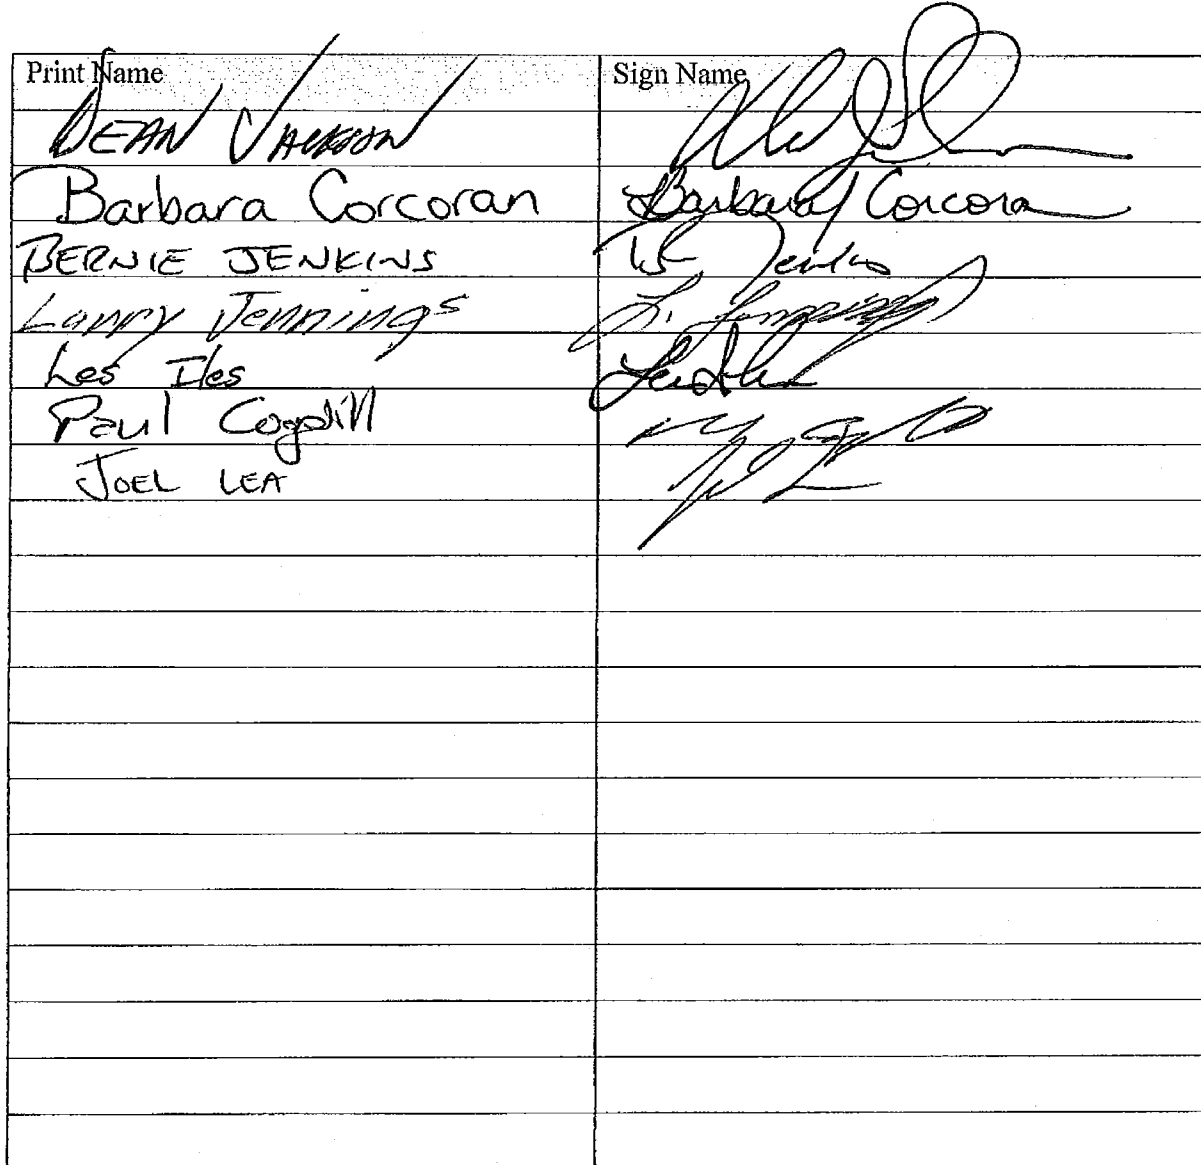 Print Name Sign Name
DEAN JACKSON
Barbara Corcoran Barbara J Corcoran
BERNIE JENKINS B Jenkins
Larry Jennings L. Jennings
Les Iles
Paul Cogdill
JOEL LEA